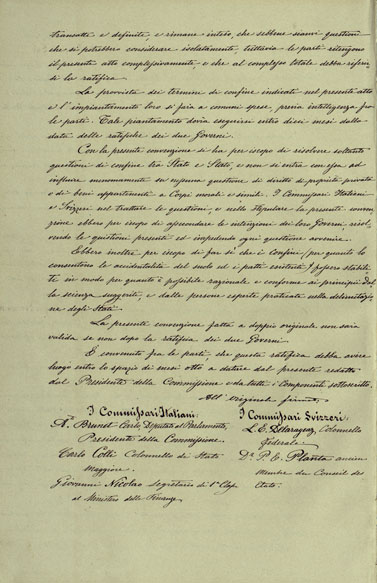 transatte e definite, e rimane inteso, che sebbene sianvi questioni
che si potrebbero considerare isolatamente, tuttavia le parti ritengono
il presente atto complessivamente, e che al complesso totale debba riferir-
si la ratifica.
La provvista dei termini di confine indicati nel presente atto
e l'impiantamento loro si farà a comuni spese, previa intelligenza fra
le parti. Tale piantamento dovrà eseguirsi entro dieci mesi dalla
data delle ratifiche dei due Governi.
Con la presente convenzione si ha per iscopo di risolvere soltanto
questioni di confine tra Stato e Stato, e non si entra con essa ad
influire menomamente su nessuna questione di diritto di proprietà privata
o di beni appartenenti a Corpi morali e simili. I Commissari Italiani
e Svizzeri nel trattare le questioni, e nello stipulare la presente conven-
zione ebbero per iscopo di assecondare le intenzioni dei loro Governi, risol-
vendo le questioni presenti ed impedendo ogni questione avvenire.
Ebbero inoltre per iscopo di far sì che i confini, per quanto lo
consentono le accidentalità del suolo ed i patti esistenti, fossero stabili-
ti in modo per quanto è possibile razionale e conforme ai principii dal-
la scienza suggeriti, e dalle persone esperte praticati nella delimitazio-
ne degli Stati.
La presente convenzione fatta a doppio originale non sarà
valida se non dopo la ratifica dei due Governi.
È convenuto fra le parti, che questa ratifica debba avere
luogo entro lo spazio di mesi otto a datare dal presente redatto
dal Presidente della Commissione e da tutti i componenti sottoscritto.
All'originale firmati
I Commissari Italiani:
A. Brunet Carlo Deputato al Parlamento,
Presidente della Commissione.
Carlo Colli Colonnello di Stato
Maggiore.
Giovanni Nicolao Segretario di 1ª Classe
al Ministero delle Finanze.
I Commissari Svizzeri.
L. E. Delarageaz, Colonnello
Federale.
Dr. P. C. Planta ancien
membre du Conseil des
Etats.